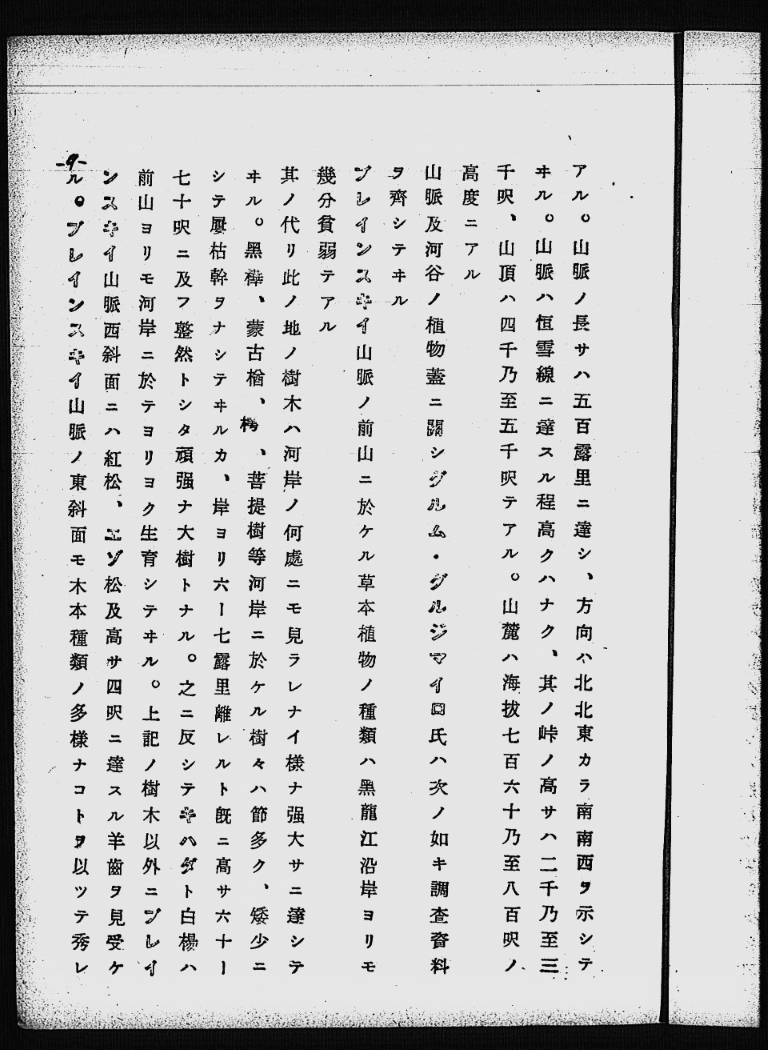 アル。山脈ノ長サハ五百露里ニ達シ、方向ハ北北東カラ南南西ヲ示シテ
ヰル。山脈ハ恒雪線ニ達スル程高クハナク、其ノ峠ノ高サハ二千乃至三
千呎、山頂ハ四千乃至五千呎テアル。山麓ハ海拔七百六十乃至八百呎ノ
高度ニアル
山脈及河谷ノ植物蓋ニ關シグルム・グルジマイロ氏ハ次ノ如キ調査資料
ヲ齊シテヰル
ブレインスキイ山脈ノ前山ニ於ケル草本植物ノ種類ハ黑龍江沿岸ヨリモ
幾分貧弱テアル
其ノ代リ此ノ地ノ樹木ハ河岸ノ何處ニモ見ラレナイ樣ナ强大サニ達シテ
ヰル。黑樺、蒙古楢、、菩提樹等河岸ニ於ケル樹々ハ節多ク、矮少ニ
シテ屢枯幹ヲナシテヰルカ、岸ヨリ六ー七露里離レルト既ニ高サ六十ー
七十呎ニ及フ整然トシタ頑强ナ大樹トナル。之ニ反シテキハダト白楊ハ
前山ヨリモ河岸ニ於テヨリヨク生育シテヰル。上記ノ樹木以外ニブレイ
ンスキイ山脈西斜面ニハ紅松、エゾ松及高サ四呎ニ達スル羊齒ヲ見受ケ
ル。ブレインスキイ山脈ノ東斜面モ木本種類ノ多樣ナコトヲ以ツテ秀レ
-9-